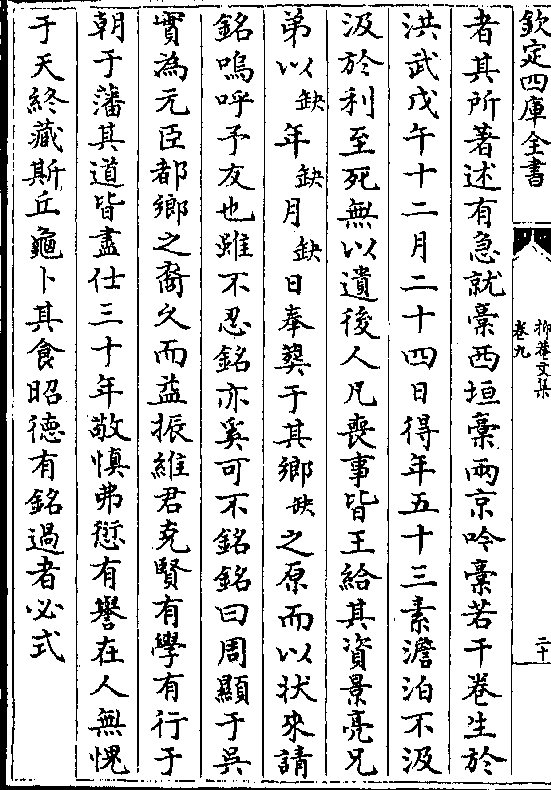 欽定四庫全書
抑菴文集
卷九
二十
者其所著述有急就稾西垣稾兩京吟稾若干卷生於
洪武戊午十二月二十四日得年五十三素澹泊不汲
汲於利至死無以遺後人凡喪事皆王給其資景亮兄
弟以缺年缺月缺日奉葬于其鄉缺之原而以狀來請
銘嗚呼予友也雖不忍銘亦奚可不銘銘曰周顯于吳
實為元臣都鄉之裔久而益振維君克賢有學有行于
朝于藩其道皆盡仕三十年敬慎弗愆有譽在人無愧
于天終藏斯丘龜卜其食昭德有銘過者必式